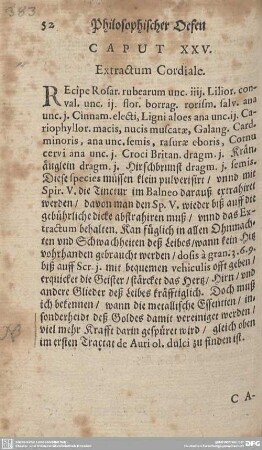 52 Philosophischer Oefen
CAPUT XXV.
Extractum Cordiale.
REcipe Rosar. rubearum unc. iiij. Lilior. con-
val. unc. ij. flor. borrag. rorism. salv. ana
unc. j. Cinnam. electi, Ligni aloes ana unc. ij. Ca-
riophyllor. macis, nucis muscatæ, Galang. Card.
minoris, ana unc. semis, rasuræ eboris, Cornu
cervi ana unc. j. Croci Britan. dragm. j. Krän-
äuglein dragm. j. Hirschbrunst dragm. j. semis.
Diese species müssen klein pulverisirt / vnnd mit
Spir. V. die Tinctur im Balneo darauß extrahirt
werden / davon man den Sp. V. wieder biß auff die
gebührliche dicke abstrahiren muß / vnnd das Ex-
tractum behalten. Kan füglich in allen Ohnmach-
ten vnd Schwachheiten deß Leibes / wann kein Hitz
vorhanden gebraucht werden / dosis à gran. 3. 6. 9.
biß auff Scr. j. mit bequemen vehiculis offt geben /
erquicket die Geister / stärcket das Hertz / Hirn / vnd
andere Glieder deß Leibes kräfftiglich. Doch muß
ich bekennen / wann die metallische Essentien / in-
sonderheit deß Goldes damit vereiniget werden /
viel mehr Krafft darin gespüret wird / gleich oben
im ersten Tractat de Auri ol. dulci zu finden ist.
C A-